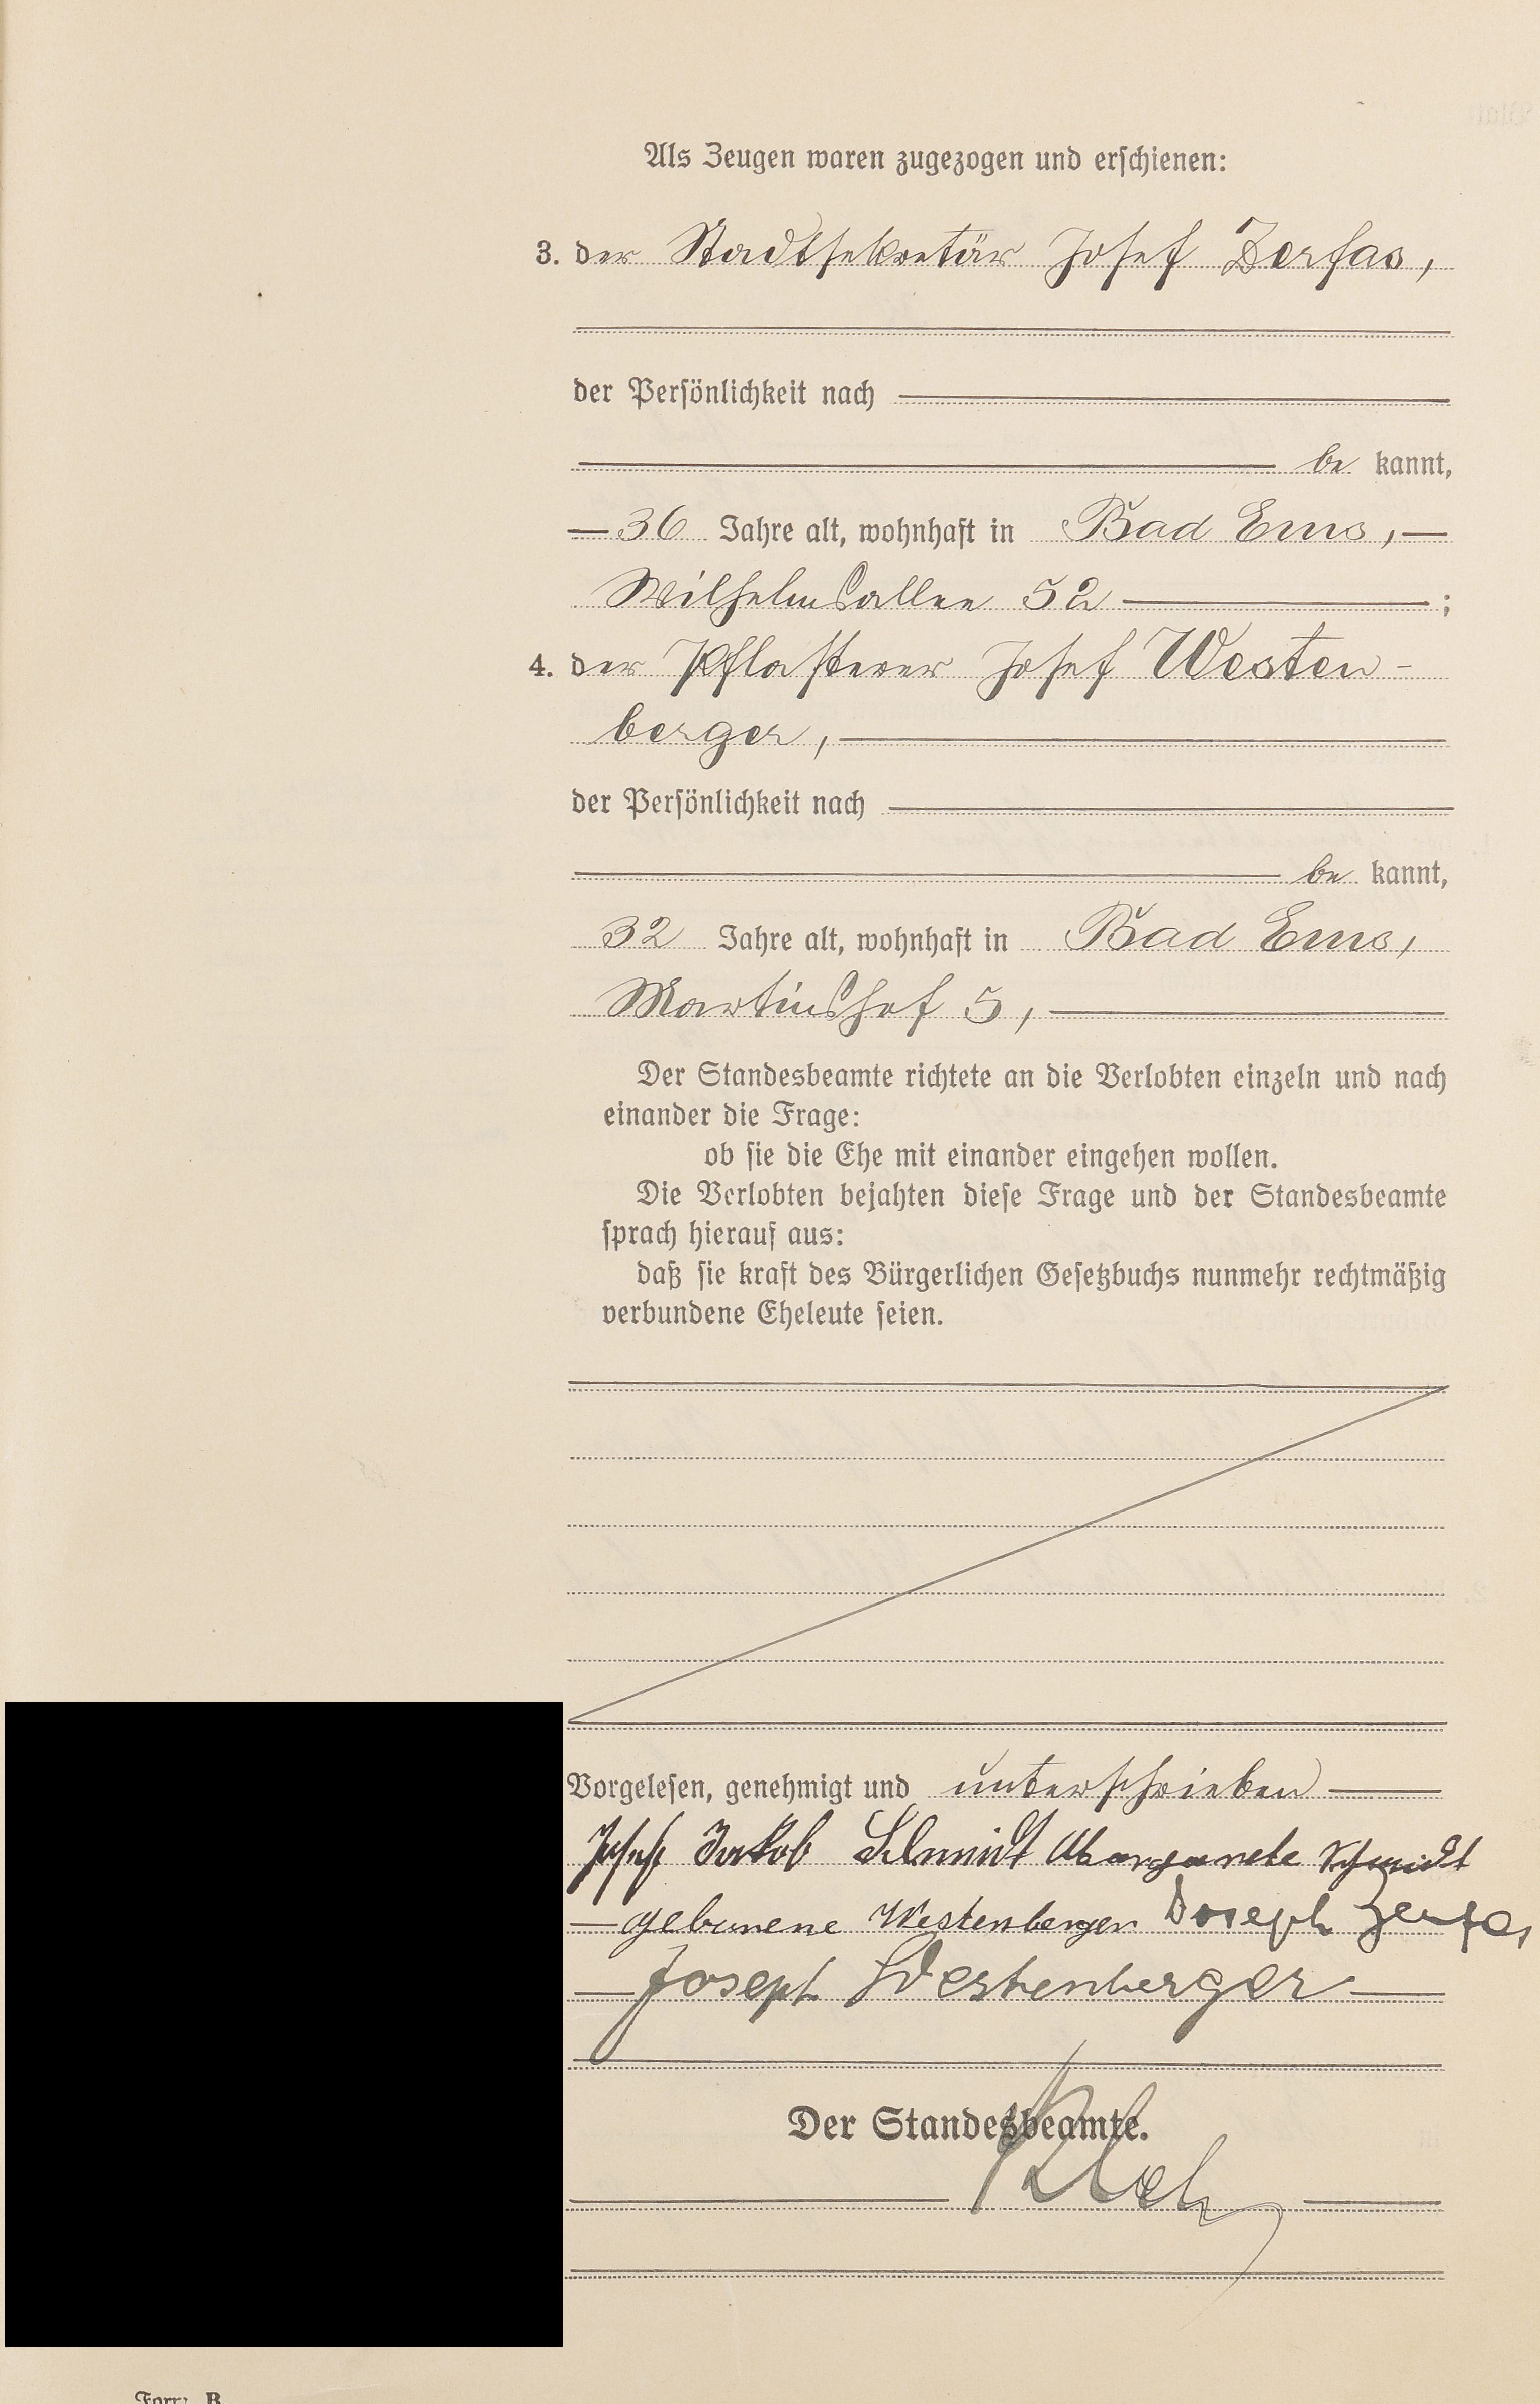 Als Zeugen waren zugezogen und erschienen:
3. der Stadtsekretär Josef Zerfas,
der Persönlichkeit nach
be kannt,
36 Jahre alt, wohnhaft in Bad Ems,
Wilhelmsallee 52 ;
4. der Pflasterer Josef Westen-
berger,
der Persönlichkeit nach
be kannt,
32 Jahre alt, wohnhaft in Bad Ems,
Martinshof 5,
Der Standesbeamte richtete an die Verlobten einzeln und nach
einander die Frage:
ob sie die Ehe mit einander eingehen wollen.
Die Verlobten bejahten diese Frage und der Standesbeamte
sprach hierauf aus:
daß sie kraft des Bürgerlichen Gesetzbuchs nunmehr rechtmäßig
verbundene Eheleute seien.
Vorgelesen, genehmigt und unterschrieben
Josef Jakob Schmidt Margarete Schmidt
geborene Westenberger Joseph Zerfas
Joseph Westenberger
Der Standesbeamte.